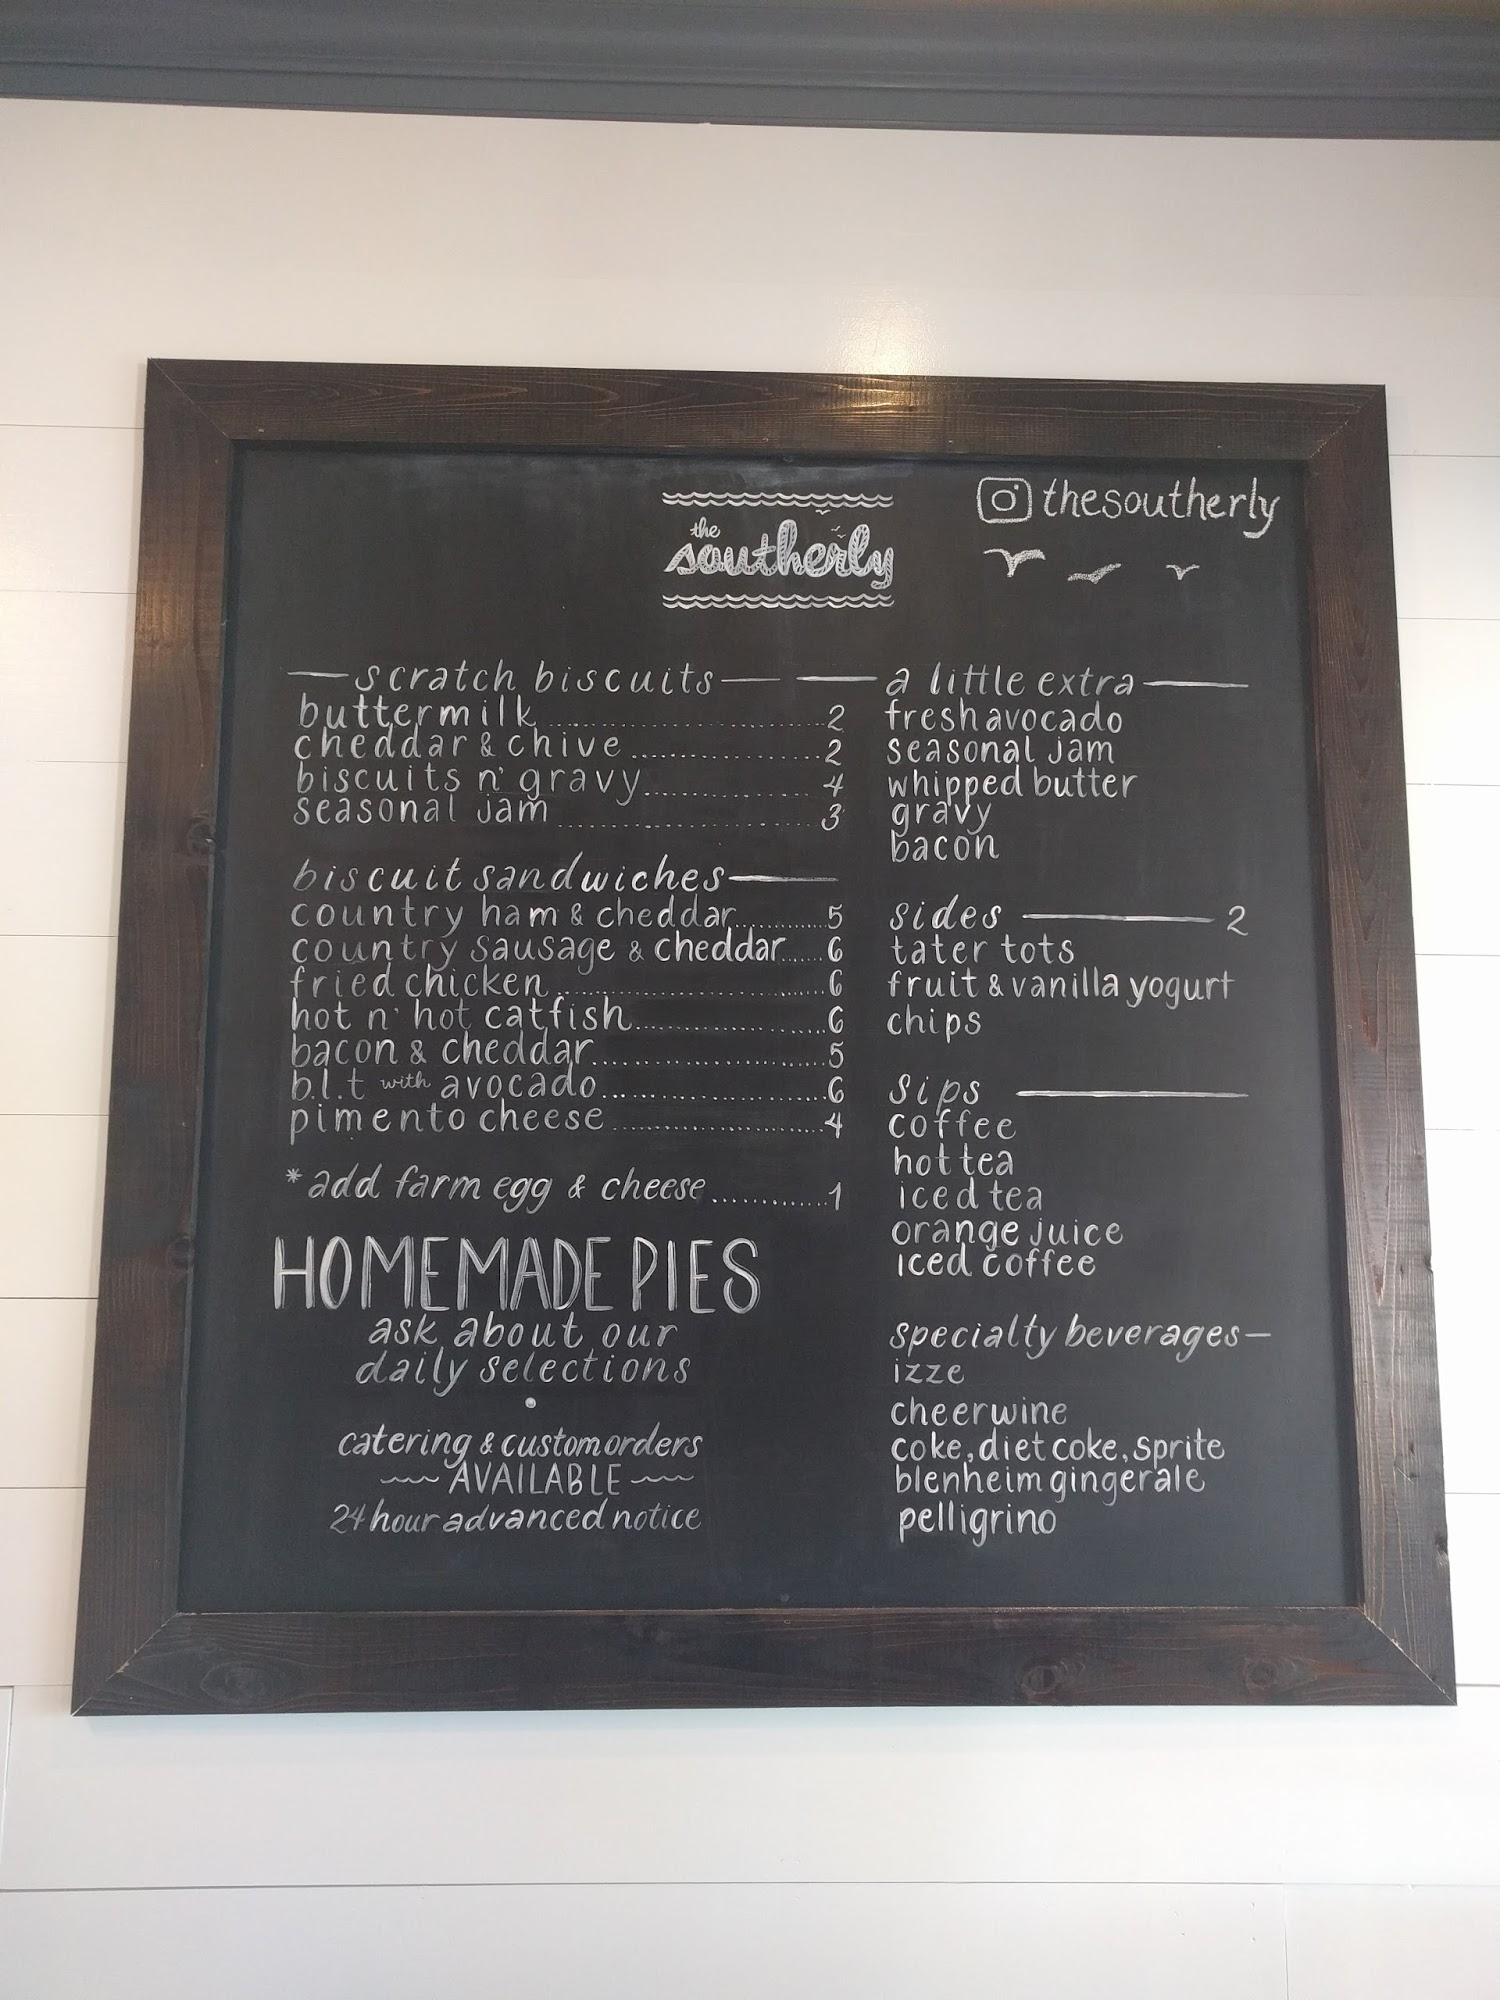 the
southerly
thesoutherly
scratch biscuits
buttermilk 2
cheddar & chive 2
biscuits n' gravy 4
seasonal jam 3
biscuit sandwiches
country ham & cheddar 5
country sausage & cheddar 6
fried chicken 6
hot n' hot catfish 6
bacon & cheddar 5
b.l.t with avocado 6
pimento cheese 4
*add farm egg & cheese 1
HOMEMADE PIES
ask about our
daily selections
catering & custom orders
AVAILABLE
24 hour advanced notice
a little extra
fresh avocado
seasonal jam
whipped butter
gravy
bacon
sides 2
tater tots
fruit & vanilla yogurt
chips
sips
coffee
hot tea
iced tea
orange juice
iced coffee
specialty beverages
izze
cheerwine
coke, diet coke, sprite
blenheim gingerale
pelligrino